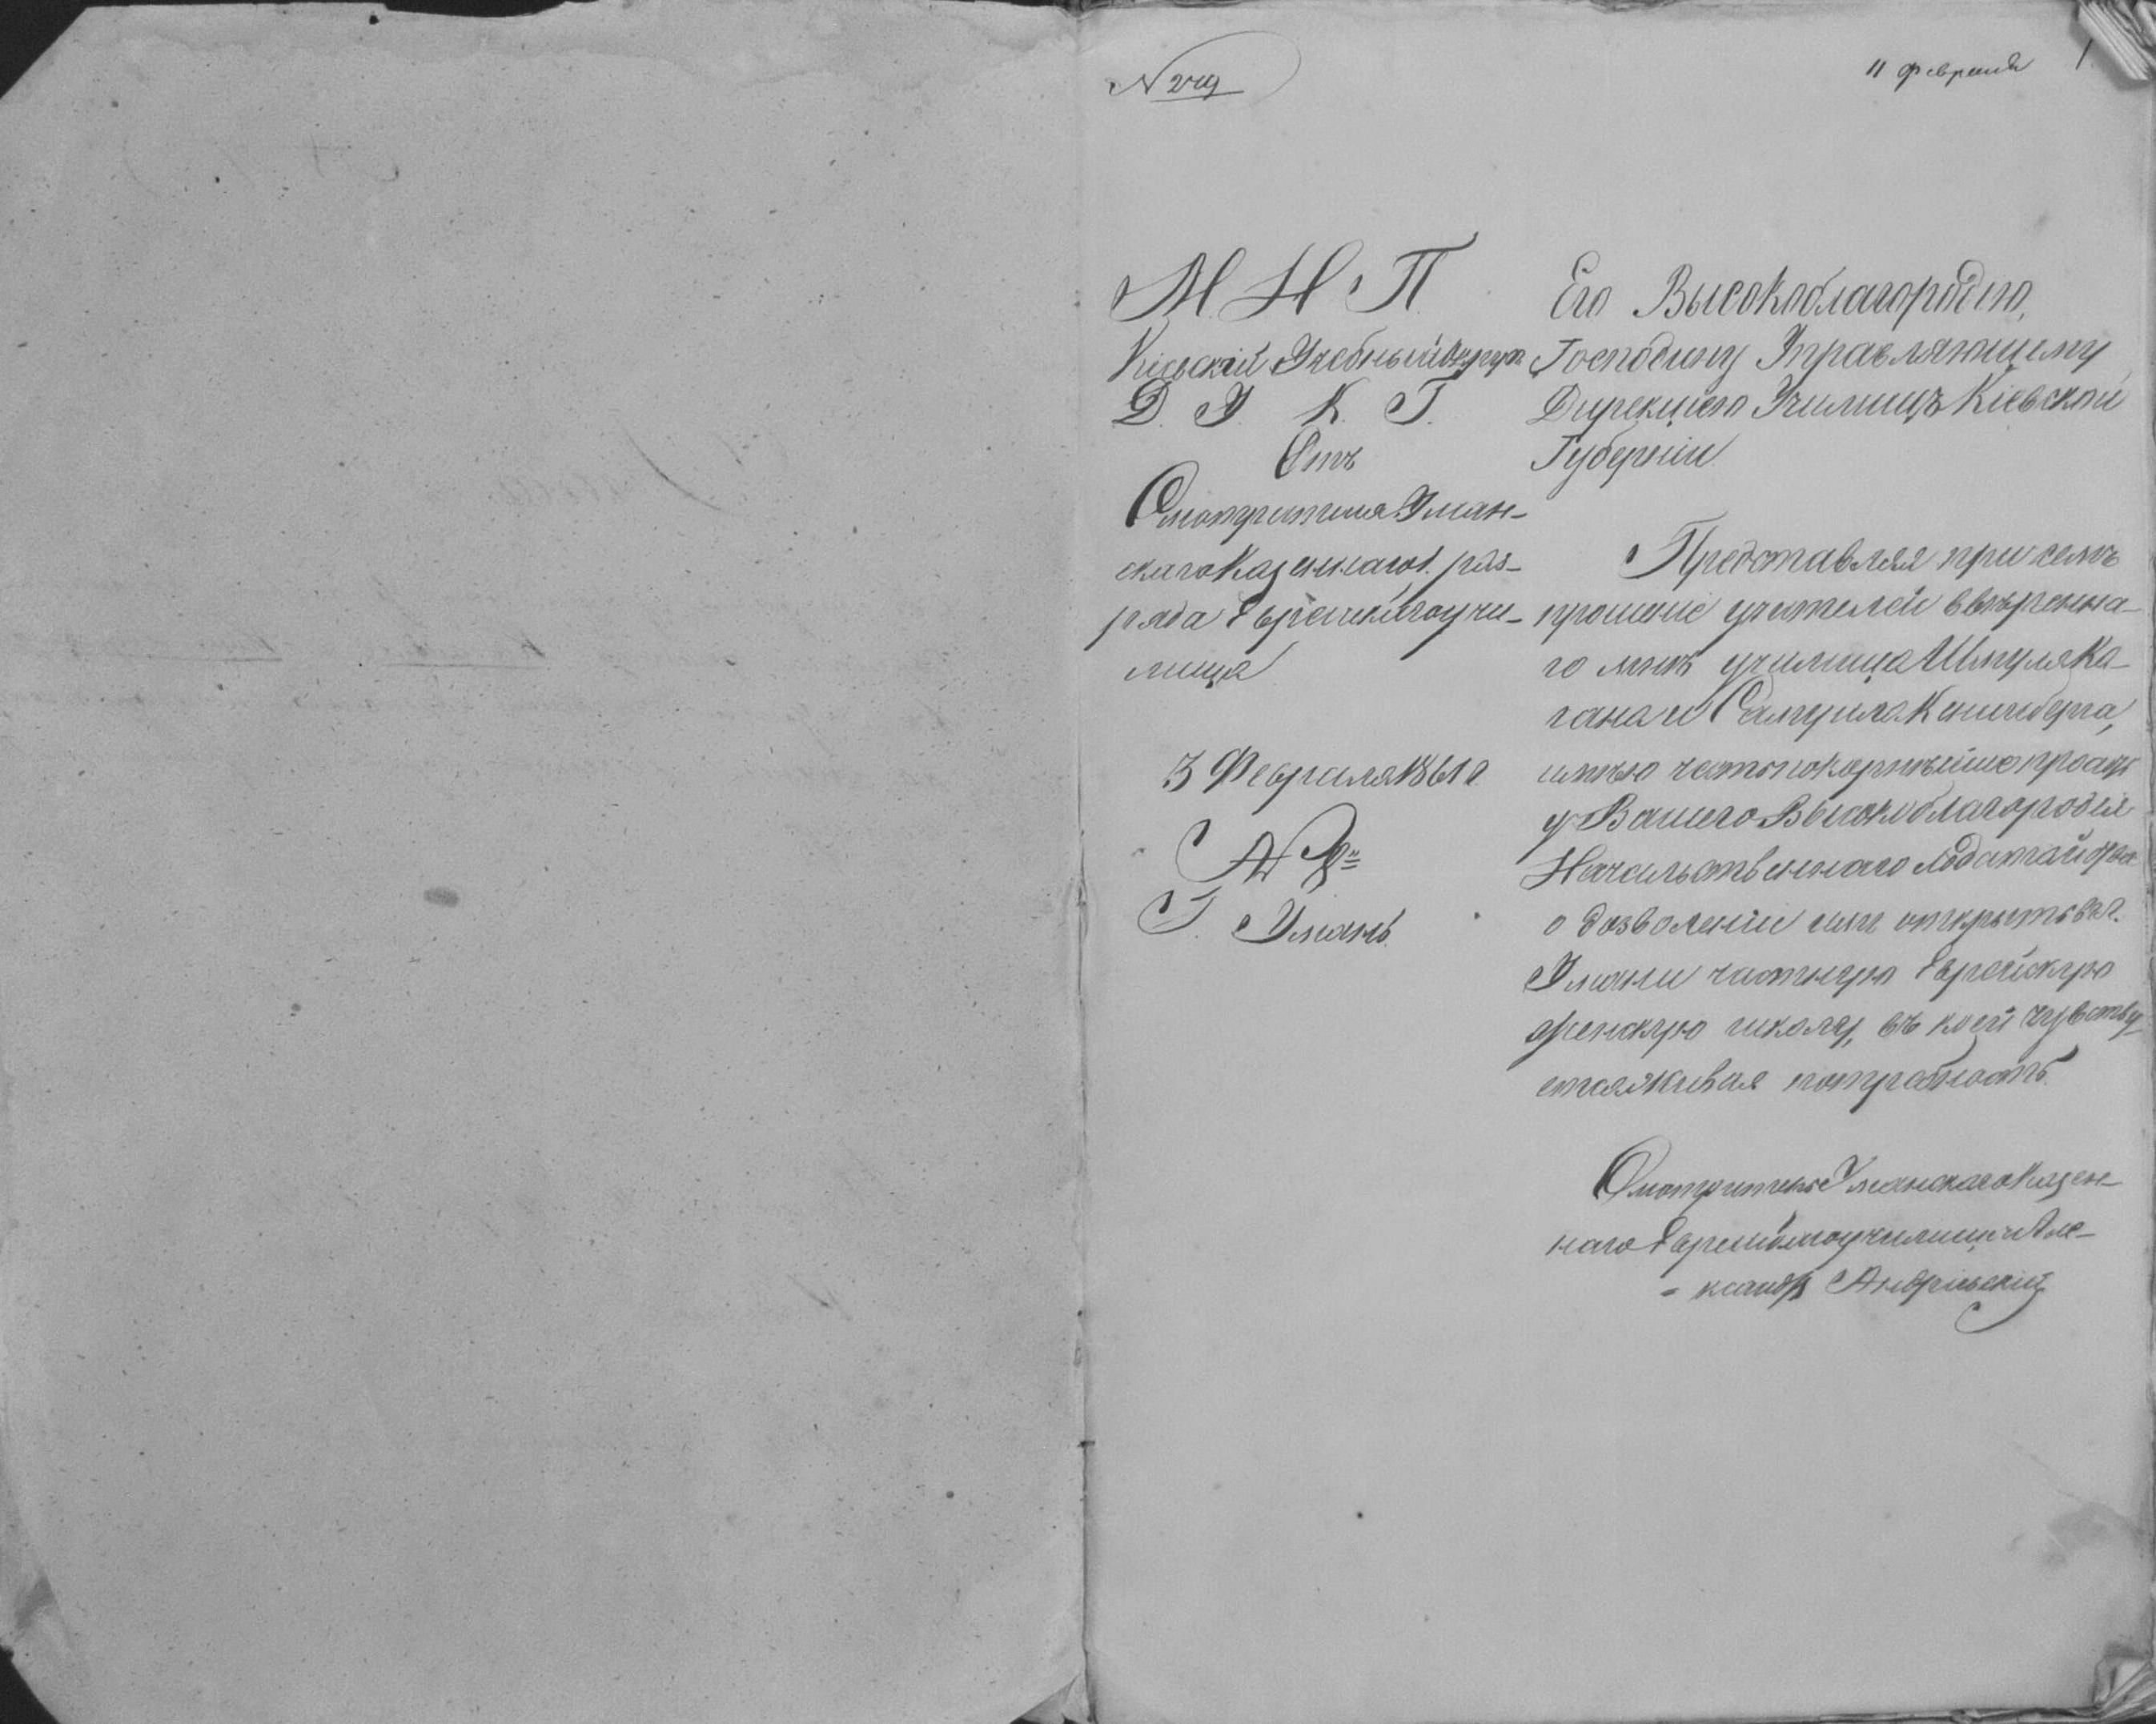 N 249
11 февраля
1
М. Н. П.
Кіевскій Учебный Округъ
Д. У. К. Г.
Отъ
Смотрителя Уман-
скаго Казеннаго 1. раз-
ряда Еврейскаго учи-
лища
3 Февраля 1861 г.
N
Г. Умань.
Его Высокоблагородію,
Господину Управляющему
Дирекціею Училищъ Кіевской
Губерніи
Представляя при семъ
прошеніе учителей ввѣренна-
го мнѣ училища Шмуля Ка-
гана и Самуила Кенигсберга,
имѣю честь покорнѣйше просить
у Вашего Высокоблагородія
Начальственнаго ходатайства
о дозволеніи имъ открыть въ г.
Умани частную Еврейскую
женскую школу, въ коей чувству-
ется живая потребность.
Смотритель Уманскаго Казен-
наго Еврейскаго училища Але-
ксандръ Андріевскій